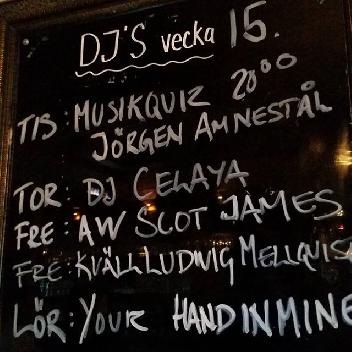 DJ'S vecka 15.
TIS: MUSIKQUIZ 20⁰⁰
JÖRGEN AMNESTÅL
TOR: DJ CELAYA
FRE: AW SCOT JAMES
FRE: KVÄLL LUDWIG MELLQVIS
LÖR: YOUR HANDINMINE